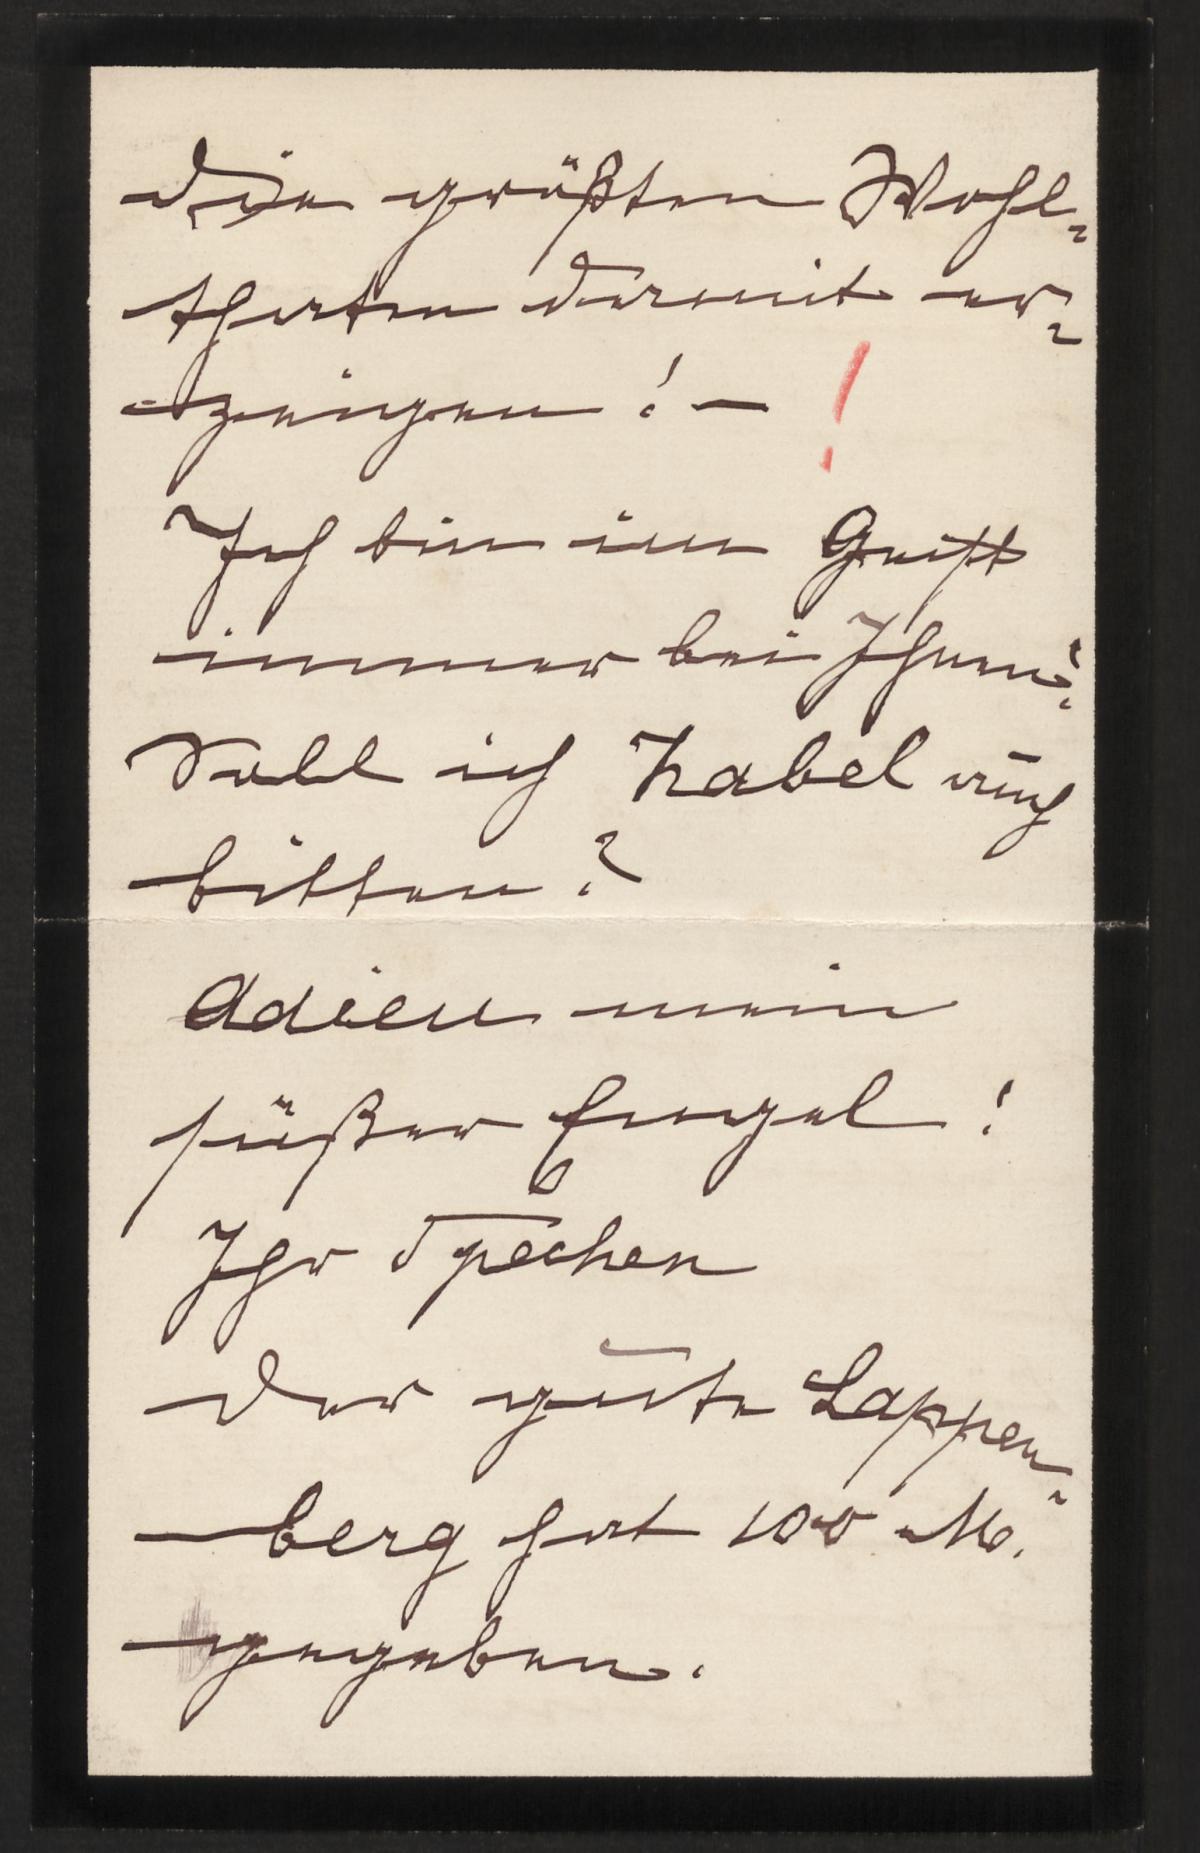 die größten Wohl-
thaten damit er-
zeigen! —
Ich bin im Geist
immer bei Ihnen!
Soll ich Zabel auch
bitten?
Adieu mein
süßer Engel!
Ihr
Der gute Lappen-
berg hat 100 M.
gegeben.